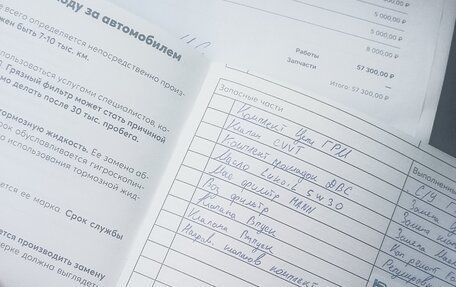 ходу за автомобилем
всего определяется непосредственно произ-
жен быть 7-10 тыс. км.
пользоваться услугами специалистов, ко-
Грязный фильтр может стать причиной
мо делать после 30 тыс. пробега.
тормозную жидкость. Ее замена об-
рок обуславливается гигроскопич-
использования тормозной жид-
ется ее марка. Срок службы
ется производить замену
ерке должна выглядеть
5 000,00 ₽
5 000,00 ₽
8 000,00 ₽
Работы 57 300,00 ₽
Запчасти —
Итого: 57 300,00 ₽
Запасные части
Комплект Цепи ГРМ
Клапан CVVT
Комплект прокладок ДВС
Масло Lukoil 5w30
Мас фильтр MANN
Воз фильтр
Клапана Впуск
Клапана Выпуск
Направ. клапанов комплект
Выполненные
С/У Г
Замена
Замена
Замена Масла
Кап ремонт Го
Регулировка